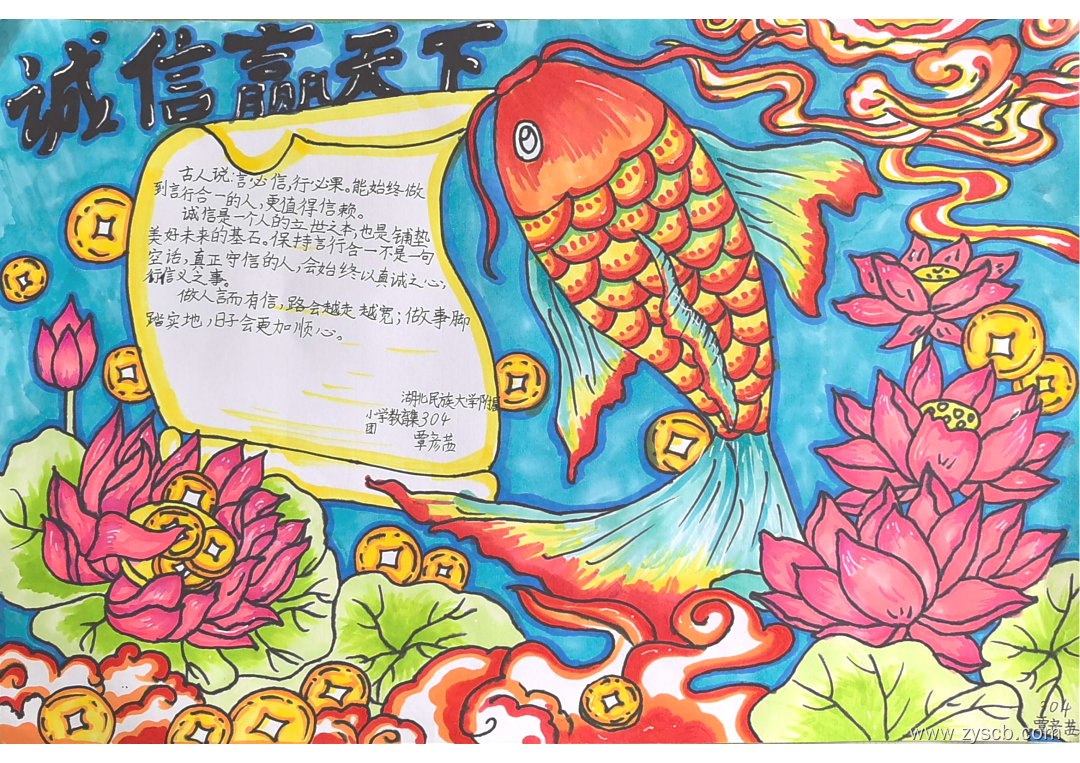 诚信赢天下
古人说:言必信,行必果。能始终做
到言行合一的人,更值得信赖。
诚信是一个人的立世之本,也是铺垫
美好未来的基石。保持言行合一不是一句
空话,真正守信的人,会始终以真诚之心,
行信义之事。
做人言而有信,路会越走越宽;做事脚
踏实地,日子会更加顺心。
湖北民族大学附属
小学教育集304
团
覃彦茜
304
覃彦茜
www.zyscb.com